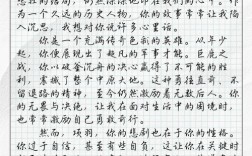 想壮的结局，仍然深深地印在我们的心中。作
为一个久远的历史人物，你的故事常常让我陷
入沉思，我想对你说许多心里话。
你是一个充满传奇色彩的英雄。从年少
起，你便展现出了超凡的军事才能。巨鹿之
战，你以破釜沉舟的决心赢得了不可能的胜
利，震撼了整个中原大地。这种勇往直前、不
留退路的精神，至今仍然激励着无数后人。你
的无畏与决绝，让我在面对生活中的困境时，
也常常激励自己勇敢前行。
然而，项羽，你的悲剧也在于你的性格。
你过于自信，甚至有些自负，这让你在关键时